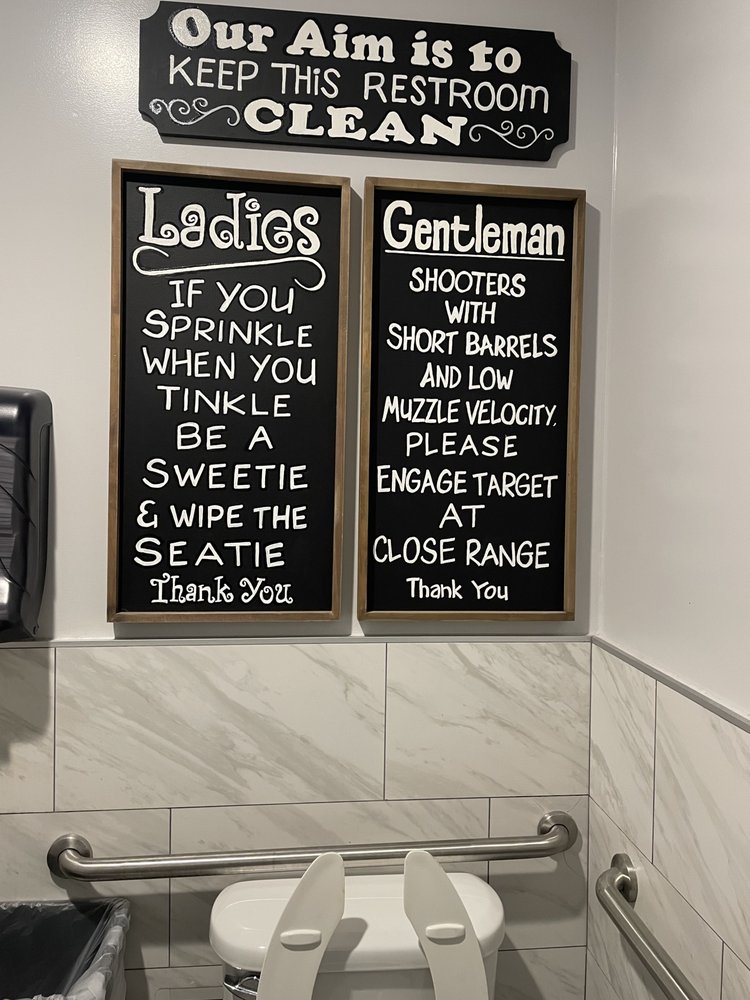 Our Aim is to
KEEP THiS RESTROOM
CLEAN
Ladies
IF YOU
SPRINKLE
WHEN YOU
TINKLE
BE A
SWEETIE
& WIPE THE
SEATIE
Thank You
Gentleman
SHOOTERS
WITH
SHORT BARRELS
AND LOW
MUZZLE VELOCITY,
PLEASE
ENGAGE TARGET
AT
CLOSE RANGE
Thank You